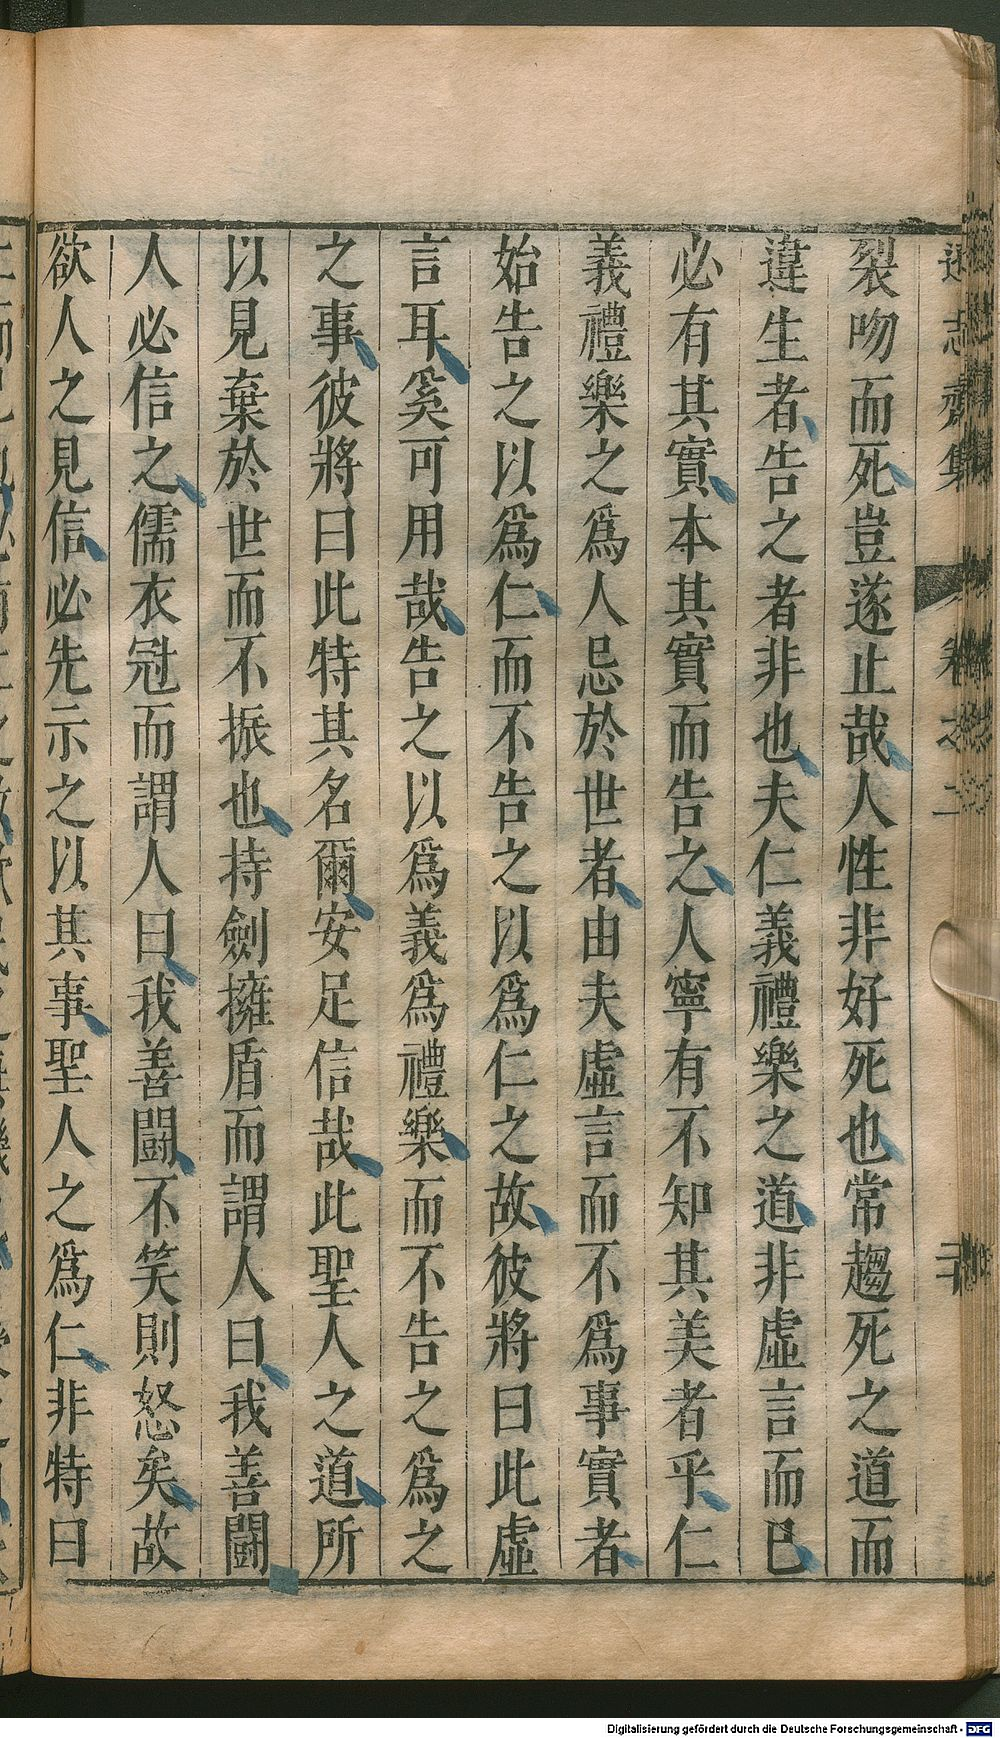 遜志齋集 卷之二 二
裂吻而死豈遂止哉人性非好死也常趨死之道而
違生者告之者非也夫仁義禮樂之道非虛言而已
必有其實本其實而告之人寧有不知其美者乎仁
義禮樂之爲人忌於世者由夫虛言而不爲事實者
始告之以爲仁而不告之以爲仁之故彼將曰此虛
言耳奚可用哉告之以爲義爲禮樂而不告之爲之
之事彼將曰此特其名爾安足信哉此聖人之道所
以見棄於世而不振也持劍擁盾而謂人曰我善鬭
人必信之儒衣冠而謂人曰我善鬭不笑則怒矣故
欲人之見信必先示之以其事聖人之爲仁非特曰
Digitalisierung gefördert durch die Deutsche Forschungsgemeinschaft - DFG